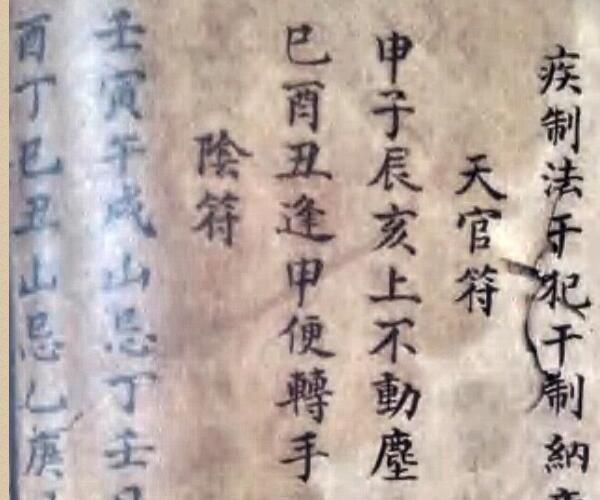 疾制法于犯干制納
天官符
申子辰亥上不動塵
巳酉丑逢甲便轉手
陰符
壬寅午戌山忌丁壬
酉丁巳丑山忌乙庚